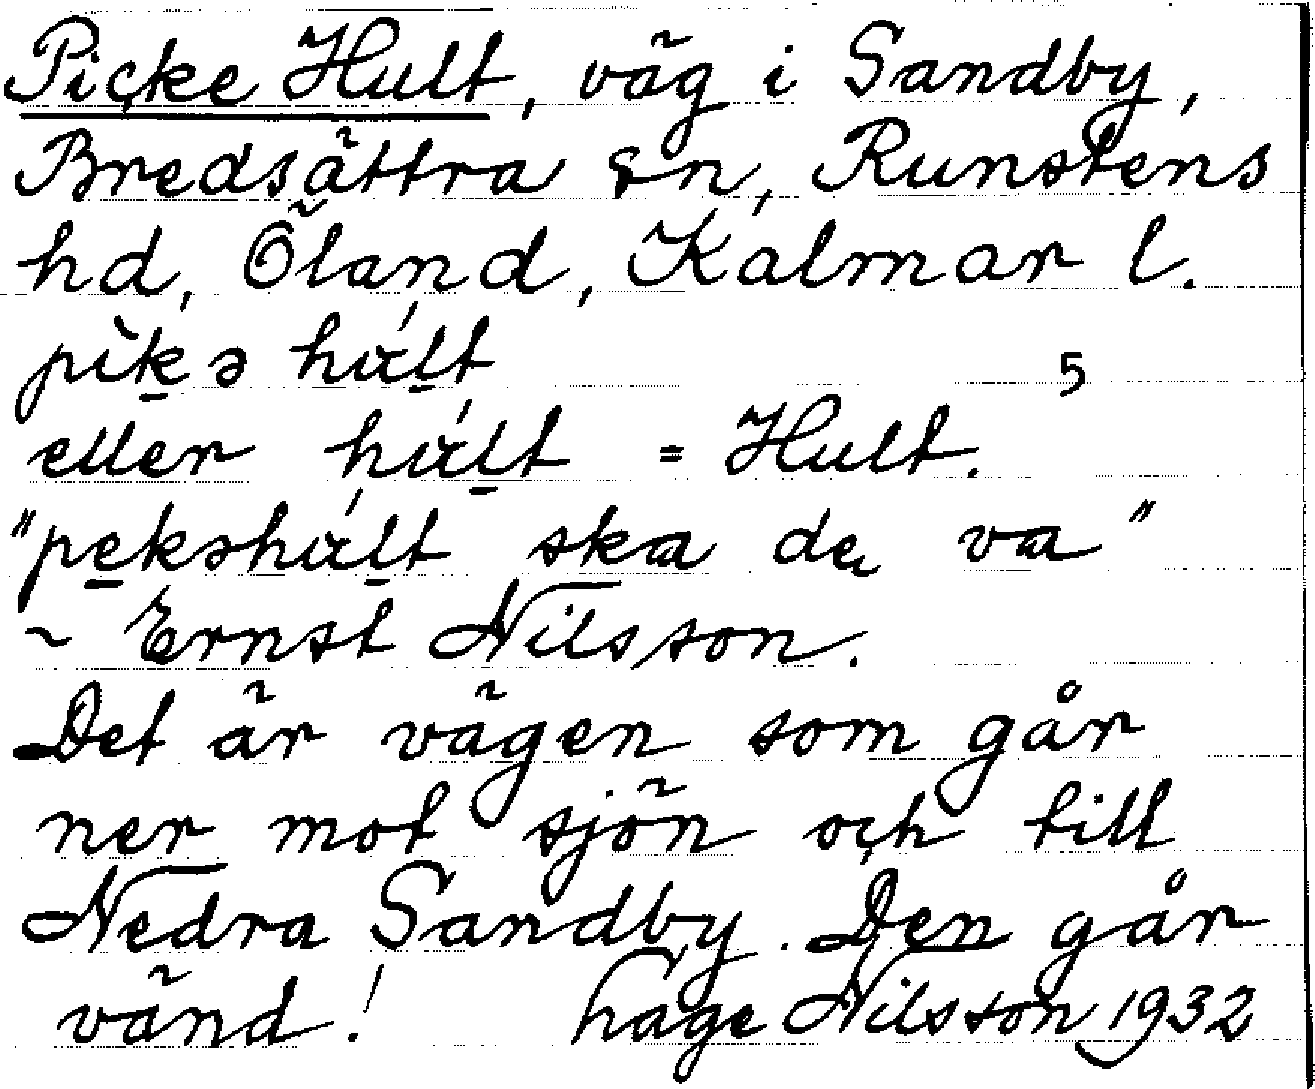 Picke Hult, väg i Sandby,
Bredsättra sn, Runstens
hd, Öland, Kalmar l.
pìkə hult 5
eller hult = Hult.
"pekshult ska dе va"
~ Ernst Nilsson.
Det är vägen som går
ner mot sjön och till
Nedra Sandby. Den går
vänd! Hage Nilsson 1932